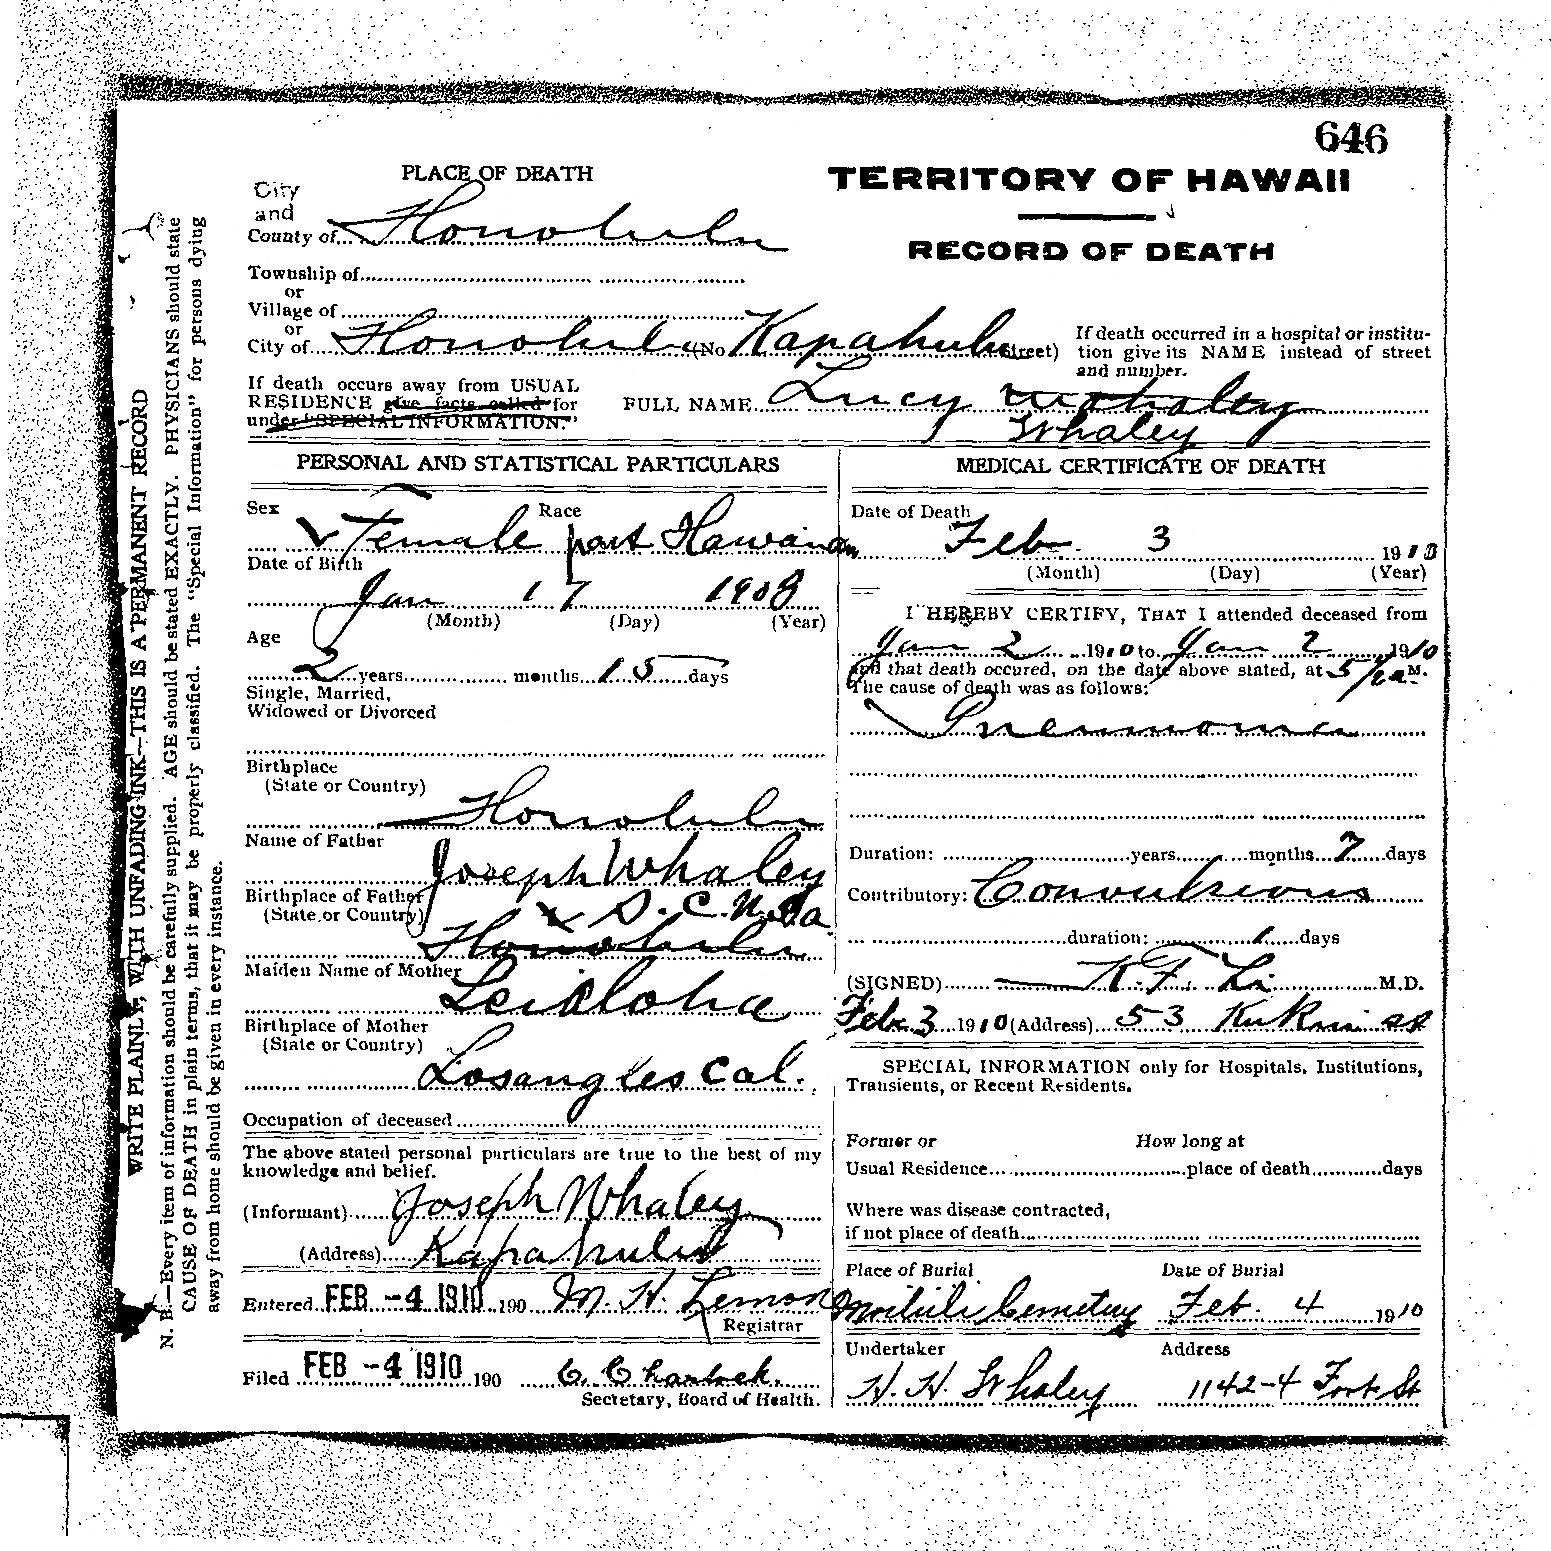 646
PLACE OF DEATH
TERRITORY OF HAWAII
RECORD OF DEATH
City
and
County of Honolulu
Township of
or
Village of
or
City of Honolulu (No Kapahulu Street)
If death occurred in a hospital or institu-
tion give its NAME instead of street
and number.
If death occurs away from USUAL
RESIDENCE give facts called for
under "SPECIAL INFORMATION."
FULL NAME Lucy Whaley
PERSONAL AND STATISTICAL PARTICULARS
Sex Race
Female part Hawaiian
Date of Birth
Jan 17 1908
(Month) (Day) (Year)
Age
2 years months 15 days
Single, Married,
Widowed or Divorced
Birthplace
(State or Country)
Honolulu
Name of Father
Joseph Whaley
Birthplace of Father
(State or Country) S. C.
Honolulu
Maiden Name of Mother
Leialoha
Birthplace of Mother
(State or Country)
Losangles Cal.
Occupation of deceased
The above stated personal particulars are true to the best of my
knowledge and belief.
(Informant) Joseph Whaley
(Address) Kapahulu
Entered FEB -4 1910 190 M. H. Lemon
Registrar
Filed FEB -4 1910 190 C. Charlock.
Secretary, Board of Health.
MEDICAL CERTIFICATE OF DEATH
Date of Death
Feb. 3 1910
(Month) (Day) (Year)
I HEREBY CERTIFY, THAT I attended deceased from
Jan 2 1910 to Jan 2 1910
and that death occured, on the date above stated, at 5 1/2 a M.
The cause of death was as follows:
Pneumonia
Duration: years months 7 days
Contributory: Convulsions
duration: 1 days
(SIGNED) K. F. Li M.D.
Feb. 3 1910 (Address) 53 Kukui st
SPECIAL INFORMATION only for Hospitals, Institutions,
Transients, or Recent Residents.
Former or How long at
Usual Residence place of death days
Where was disease contracted,
if not place of death
Place of Burial Date of Burial
Moiliili Cemetery Feb. 4 1910
Undertaker Address
H. H. Whaley 1142-4 Fort St
WRITE PLAINLY, WITH UNFADING INK—THIS IS A PERMANENT RECORD
N. B.—Every item of information should be carefully supplied. AGE should be stated EXACTLY. PHYSICIANS should state
CAUSE OF DEATH in plain terms, that it may be properly classified. The "Special Information" for persons dying
away from home should be given in every instance.